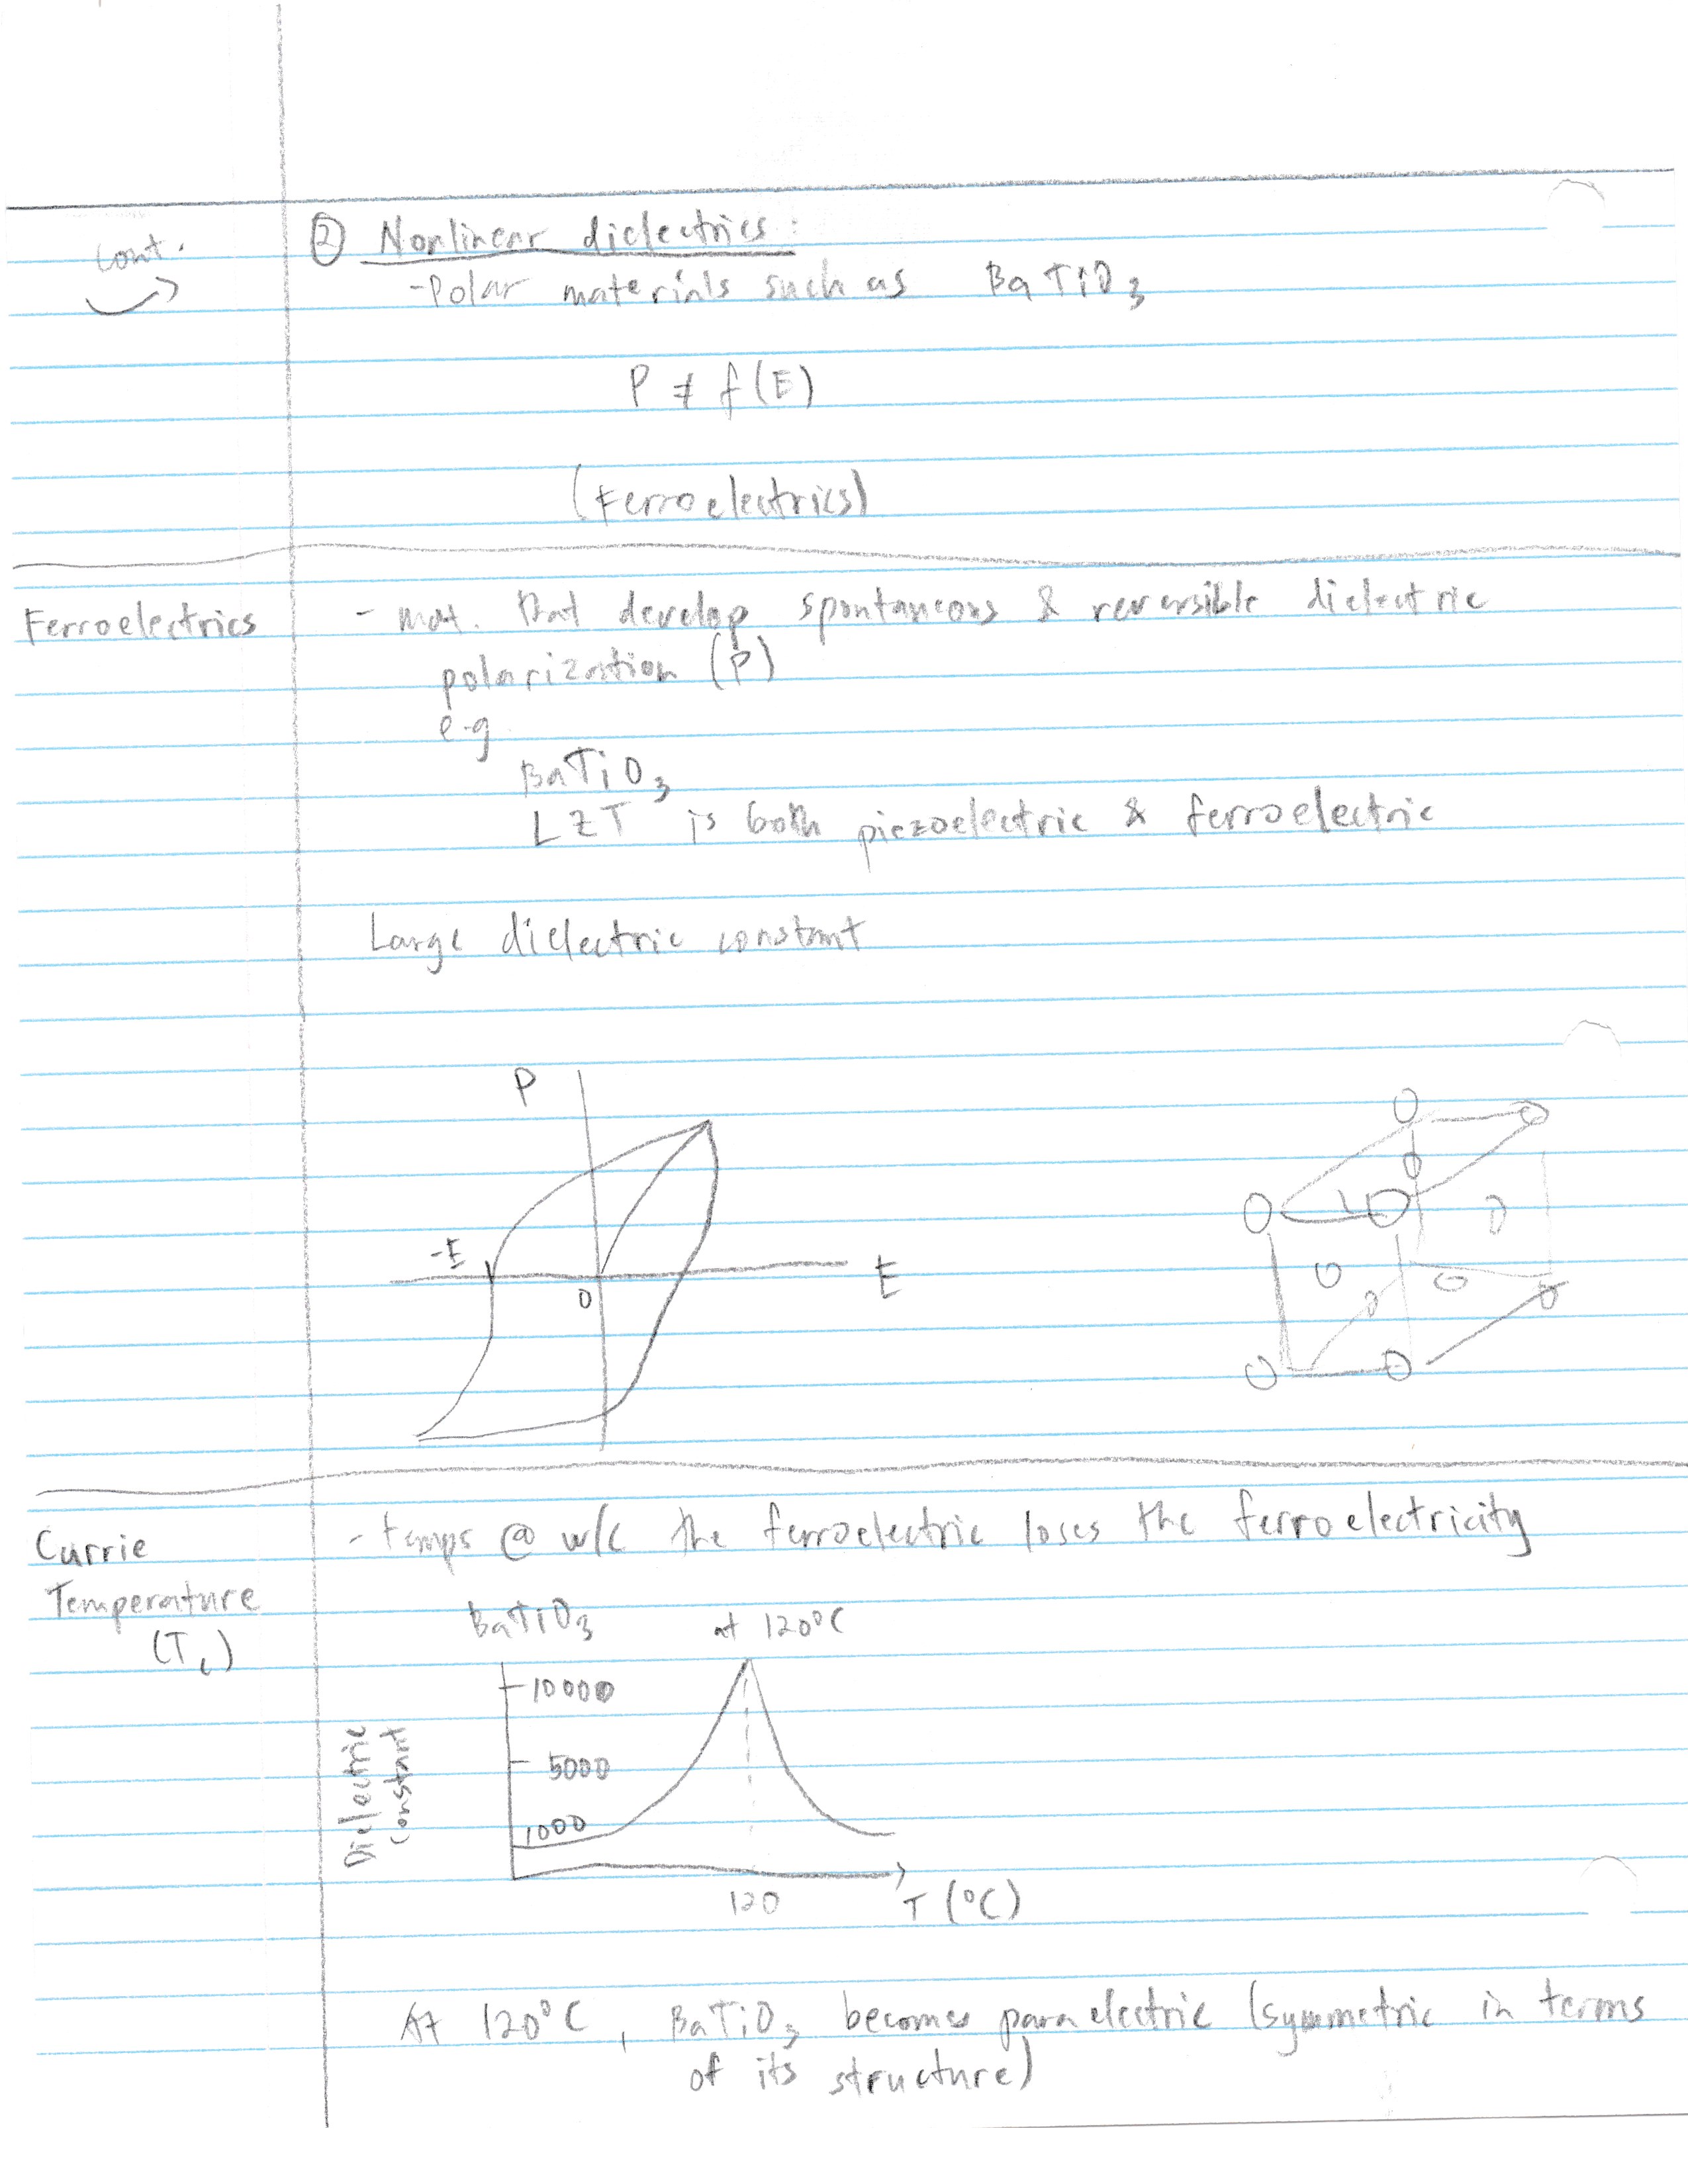 cont.
② Nonlinear dielectrics:
-Polar materials such as BaTiO3
P ≠ f(E)
(Ferroelectrics)
Ferroelectrics
- mat. that develop spontaneous & reversible dielectric
polarization (P)
e.g
BaTiO3
LZT is both piezoelectric & ferroelectric
Large dielectric constant
P
-E
0
E
Currie
Temperature
(Tc)
- temps @ w/c the ferroelectric loses the ferroelectricity
BaTiO3 at 120°C
Dielectric
constant
10000
5000
1000
120
T (°C)
At 120°C, BaTiO3 becomes paraelectric (symmetric in terms
of its structure)